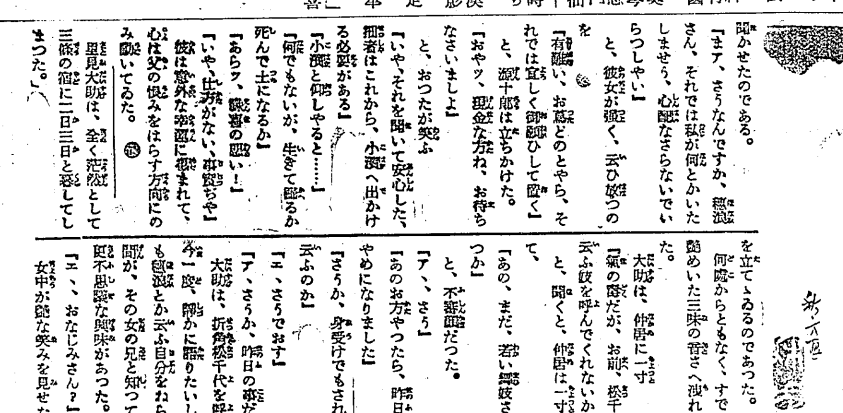 聞かせたのである。
『まア、さうなんですか、穏浪
さん、それでは私が何とかいた
しませう、心配なさらないでい
らつしやい』
と、彼女が強く、云ひ放つの
を
『有難い、お蔦どのとやら、そ
れでは宜しく御願ひして置く』
と、源十郎は立ちかけた。
『おやッ、現金な方ね、お待ち
なさいましよ』
と、おつたが笑ふ
『いや、それを聞いて安心した、
拙者はこれから、小濱へ出かけ
る必要がある』
『小濱と仰しやると……』
『何でもないが、生きて歸るか
死んで土になるか』
『あらッ、縁喜の悪い！』
『いや、仕方がない、事實ぢや』
彼は意外な幸運に惠まれて、
心は父の恨みをはらす方向にの
み動いてゐた。
里見大助は、全く茫然として
三條の宿に二日三日と暮してし
まつた。
を立てゝゐるのであつた。
何處からともなく、すで
艶めいた三味の音さへ洩れ
た。
大助は、仲居に一寸
『氣の毒だが、お前、松千
云ふ妓を呼んでくれないか
と、聞くと、仲居は一寸
て、
『あの、まだ、若い舞妓さ
つか』
『アヽ、さう』
と、不審面だつた。
『あのお方やつたら、昨日
やめになりました』
『さうか、身受けでもされ
云ふのか』
『エ、さうでおす』
『ア、さうか、昨日の事だ
大助は、折角松千代を
今一度、靜かに語りたいし
も穏浪とか云ふ自分をねら
間が、その女の兄と知つて
更不思議な興味があつた。
『エヽ、おなじみさん？』
女中が艶な笑みを見せた